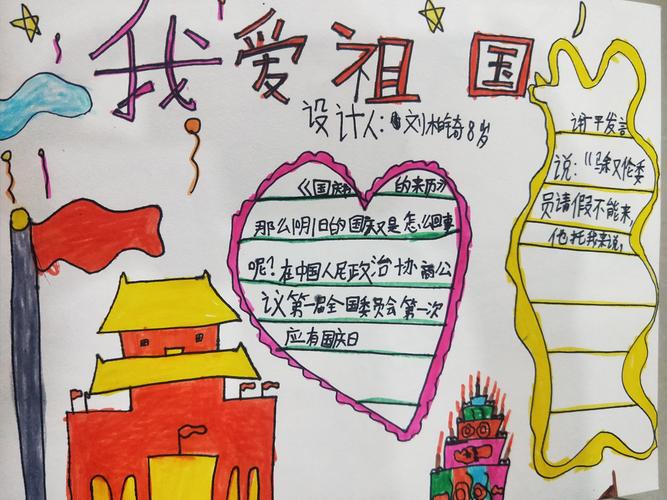 我爱祖国
设计人:刘柏锜8岁
《国庆的来历》
那么10月1日的国庆又是怎么回事
呢?在中国人民政治协商公
议第一届全国委员会第一次
应有国庆日
谢平发言
说:"马叙伦委
员请假不能来,
他托我来说,